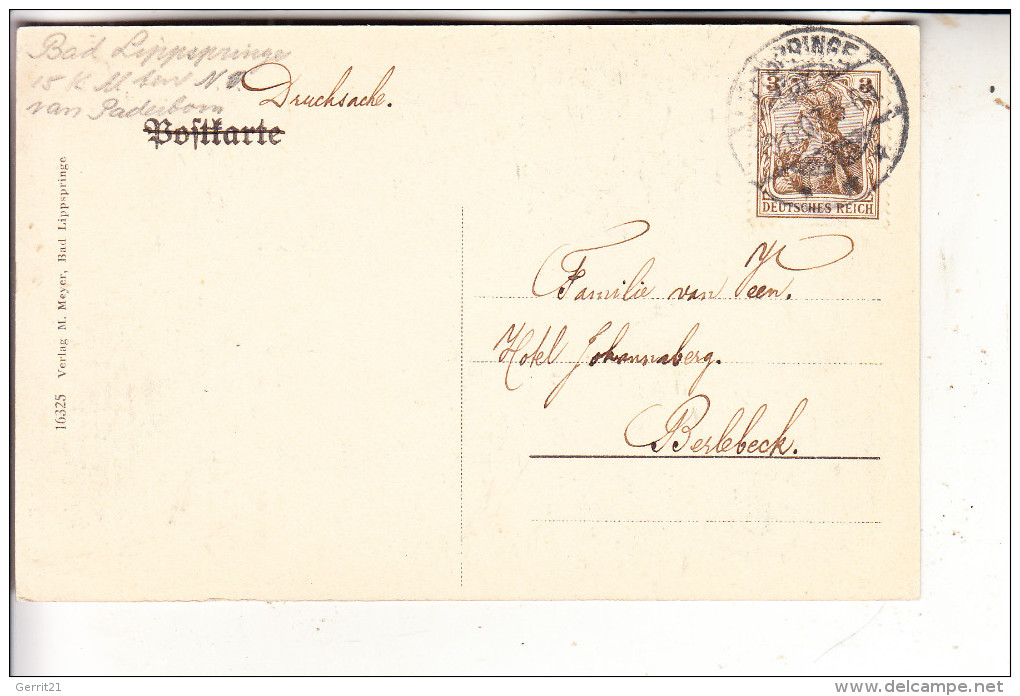 Bad Lippspringe
15 K M ten N.O
van Paderborn
Drucksache.
Postkarte
16325 Verlag M. Meyer, Bad Lippspringe
SPRINGE
3 3
DEUTSCHES REICH
Familie van Veen.
Hotel Johannaberg.
Berlebeck.
Gerrit21
delcampe.net